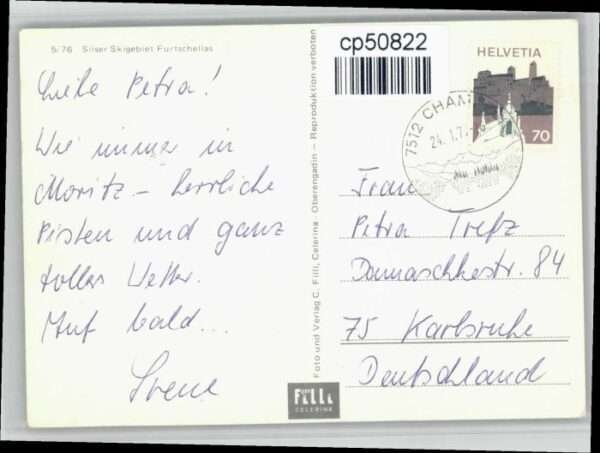 5/76 Silser Skigebiet Furtschellas
Liebe Petra!
Wie immer in
Moritz – herrliche
Pisten und ganz
tolles Wetter.
Auf bald...
Foto und Verlag C. Filli, Celerina · Oberengadin – Reproduktion verboten
FILLI
CELERINA
cp50822
HELVETIA
70
7512 CHAM
24.1.7
Frau
Petra Trefz
Damaschkestr. 84
75 Karlsruhe
Deutschland